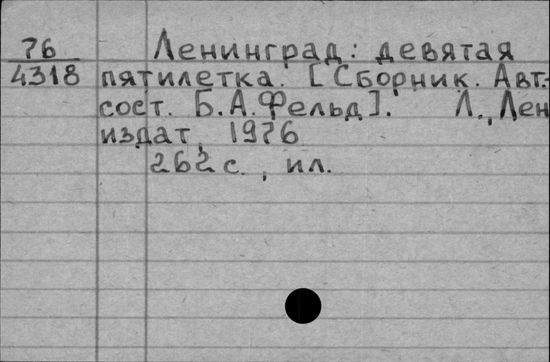 76 Ленинград: девятая
4318 пятилетка. [Сборник. Авт.-
сост. Б.А.Фельд]. Л., Лен
издат, 1976
262 с., ил.